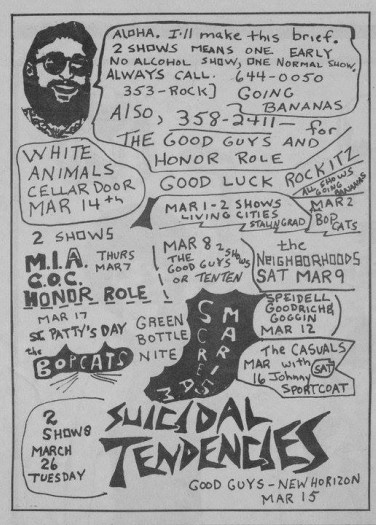 ALOHA. I'll make this brief.
2 SHOWS MEANS ONE EARLY
NO ALCOHOL SHOW, ONE NORMAL SHOW.
ALWAYS CALL. 644-0050
353-ROCK] GOING
BANANAS
Also, 358-2411- for
THE GOOD GUYS AND
HONOR ROLE
GOOD LUCK ROCKITZ
ALL SHOWS
GOING
BANANAS
WHITE
ANIMALS
CELLAR DOOR
MAR 14th
MAR 1-2 SHOWS
LIVING CITIES
STALINGRAD
MAR 2
BOP
CATS
2 SHOWS
M.I.A
C.O.C.
HONOR ROLE
THURS
MAR 7
MAR 8 2 SHOWS
THE GOOD GUYS
OR TENTEN
the
NEIGHBORHOODS
SAT MAR 9
MAR 17
ST. PATTY'S DAY
the
BOPCATS
GREEN
BOTTLE
NITE
SCREAM
MARI
SPEIDELL
GOODRICH &
GOGGIN
MAR 12
The CASUALS
MAR with SAT
16 Johnny
SPORTCOAT
2
SHOWS
MARCH
26
TUESDAY
SUICIDAL
TENDENCIES
GOOD GUYS - NEW HORIZON
MAR 15